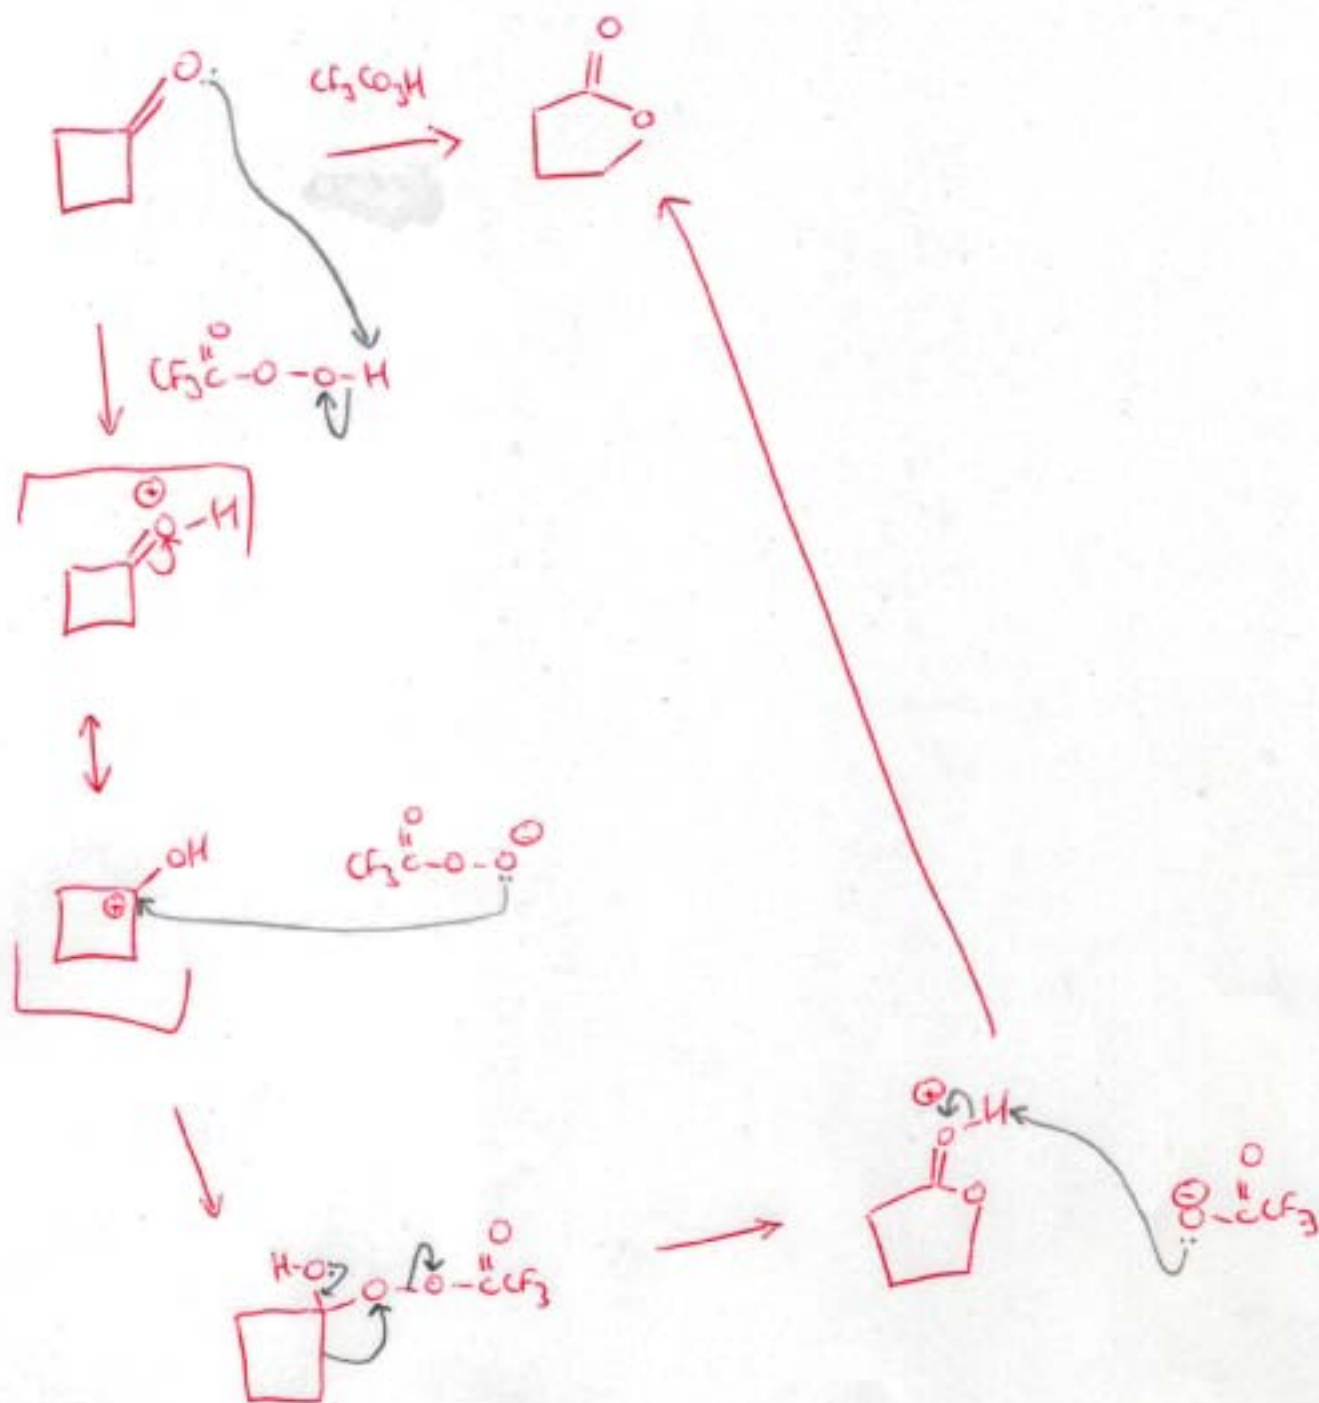 O
O:
CF3CO3H
O
O
CF3C-O-O-H
⊕
O-H
OH
O
⊖
CF3C-O-O
⊕
⊕
H
O
O
O
⊖
O-CCF3
O
H-O:
O-O-CCF3